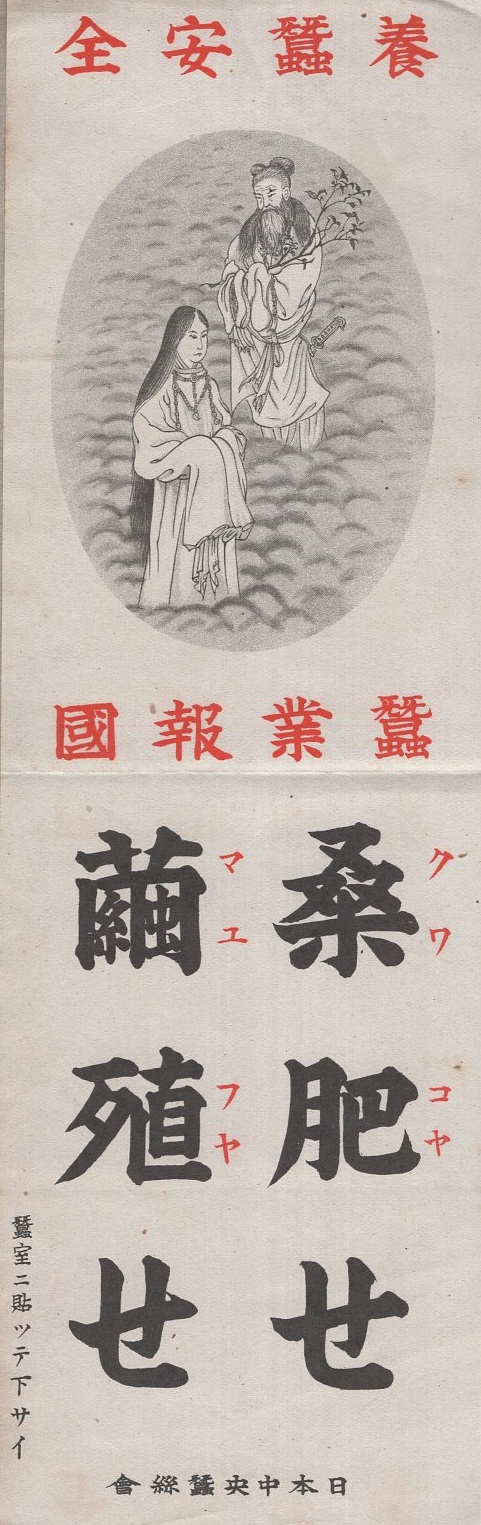 養蠶安全
蠶業報國
桑肥せ
クワコヤ
繭殖せ
マユフヤ
蠶室ニ貼ツテ下サイ
日本中央蠶絲會